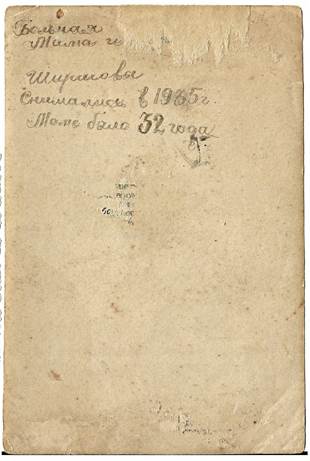 Больная
Мама и
Ширшовы
Снимались в 1935 г.
Маме было 32 года